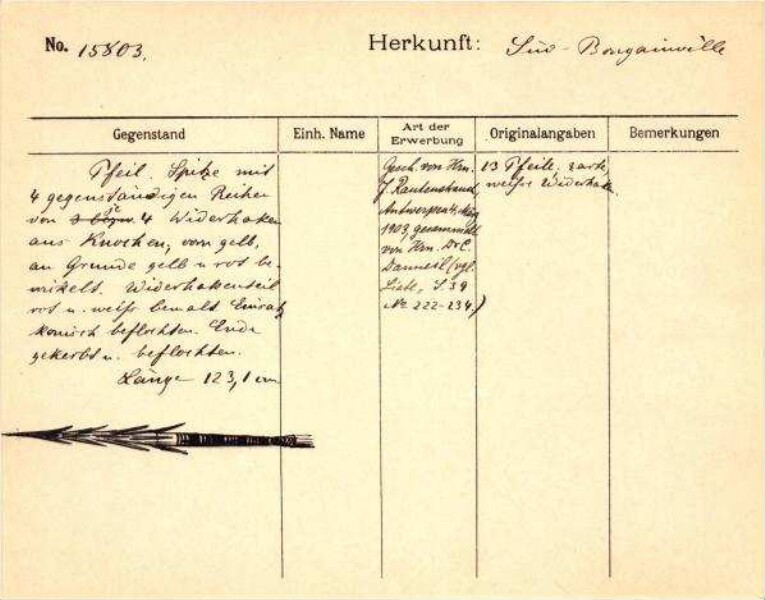 No. 15803.
Herkunft: Süd-Bougainville
Gegenstand
Einh. Name
Art der Erwerbung
Originalangaben
Bemerkungen
Pfeil. Spitze mit
4 gegenständigen Reihen
von 4 Widerhaken
aus Knochen, vorn gelb,
am Grunde gelb u. rot be-
wickelt. Widerhakenteil
rot u. weiß bemalt
konisch beflochten. Ende
gekerbt u. beflochten.
Länge 123,1 cm
Gesch. von Hrn.
J. Rautenstrauch,
Antwerpen,
1903, gesammelt
von Hrn. Dr C.
Danneil (vgl.
Liste, S 39
No 222-234.)
13 Pfeile, zarte,
weiße Widerhak.